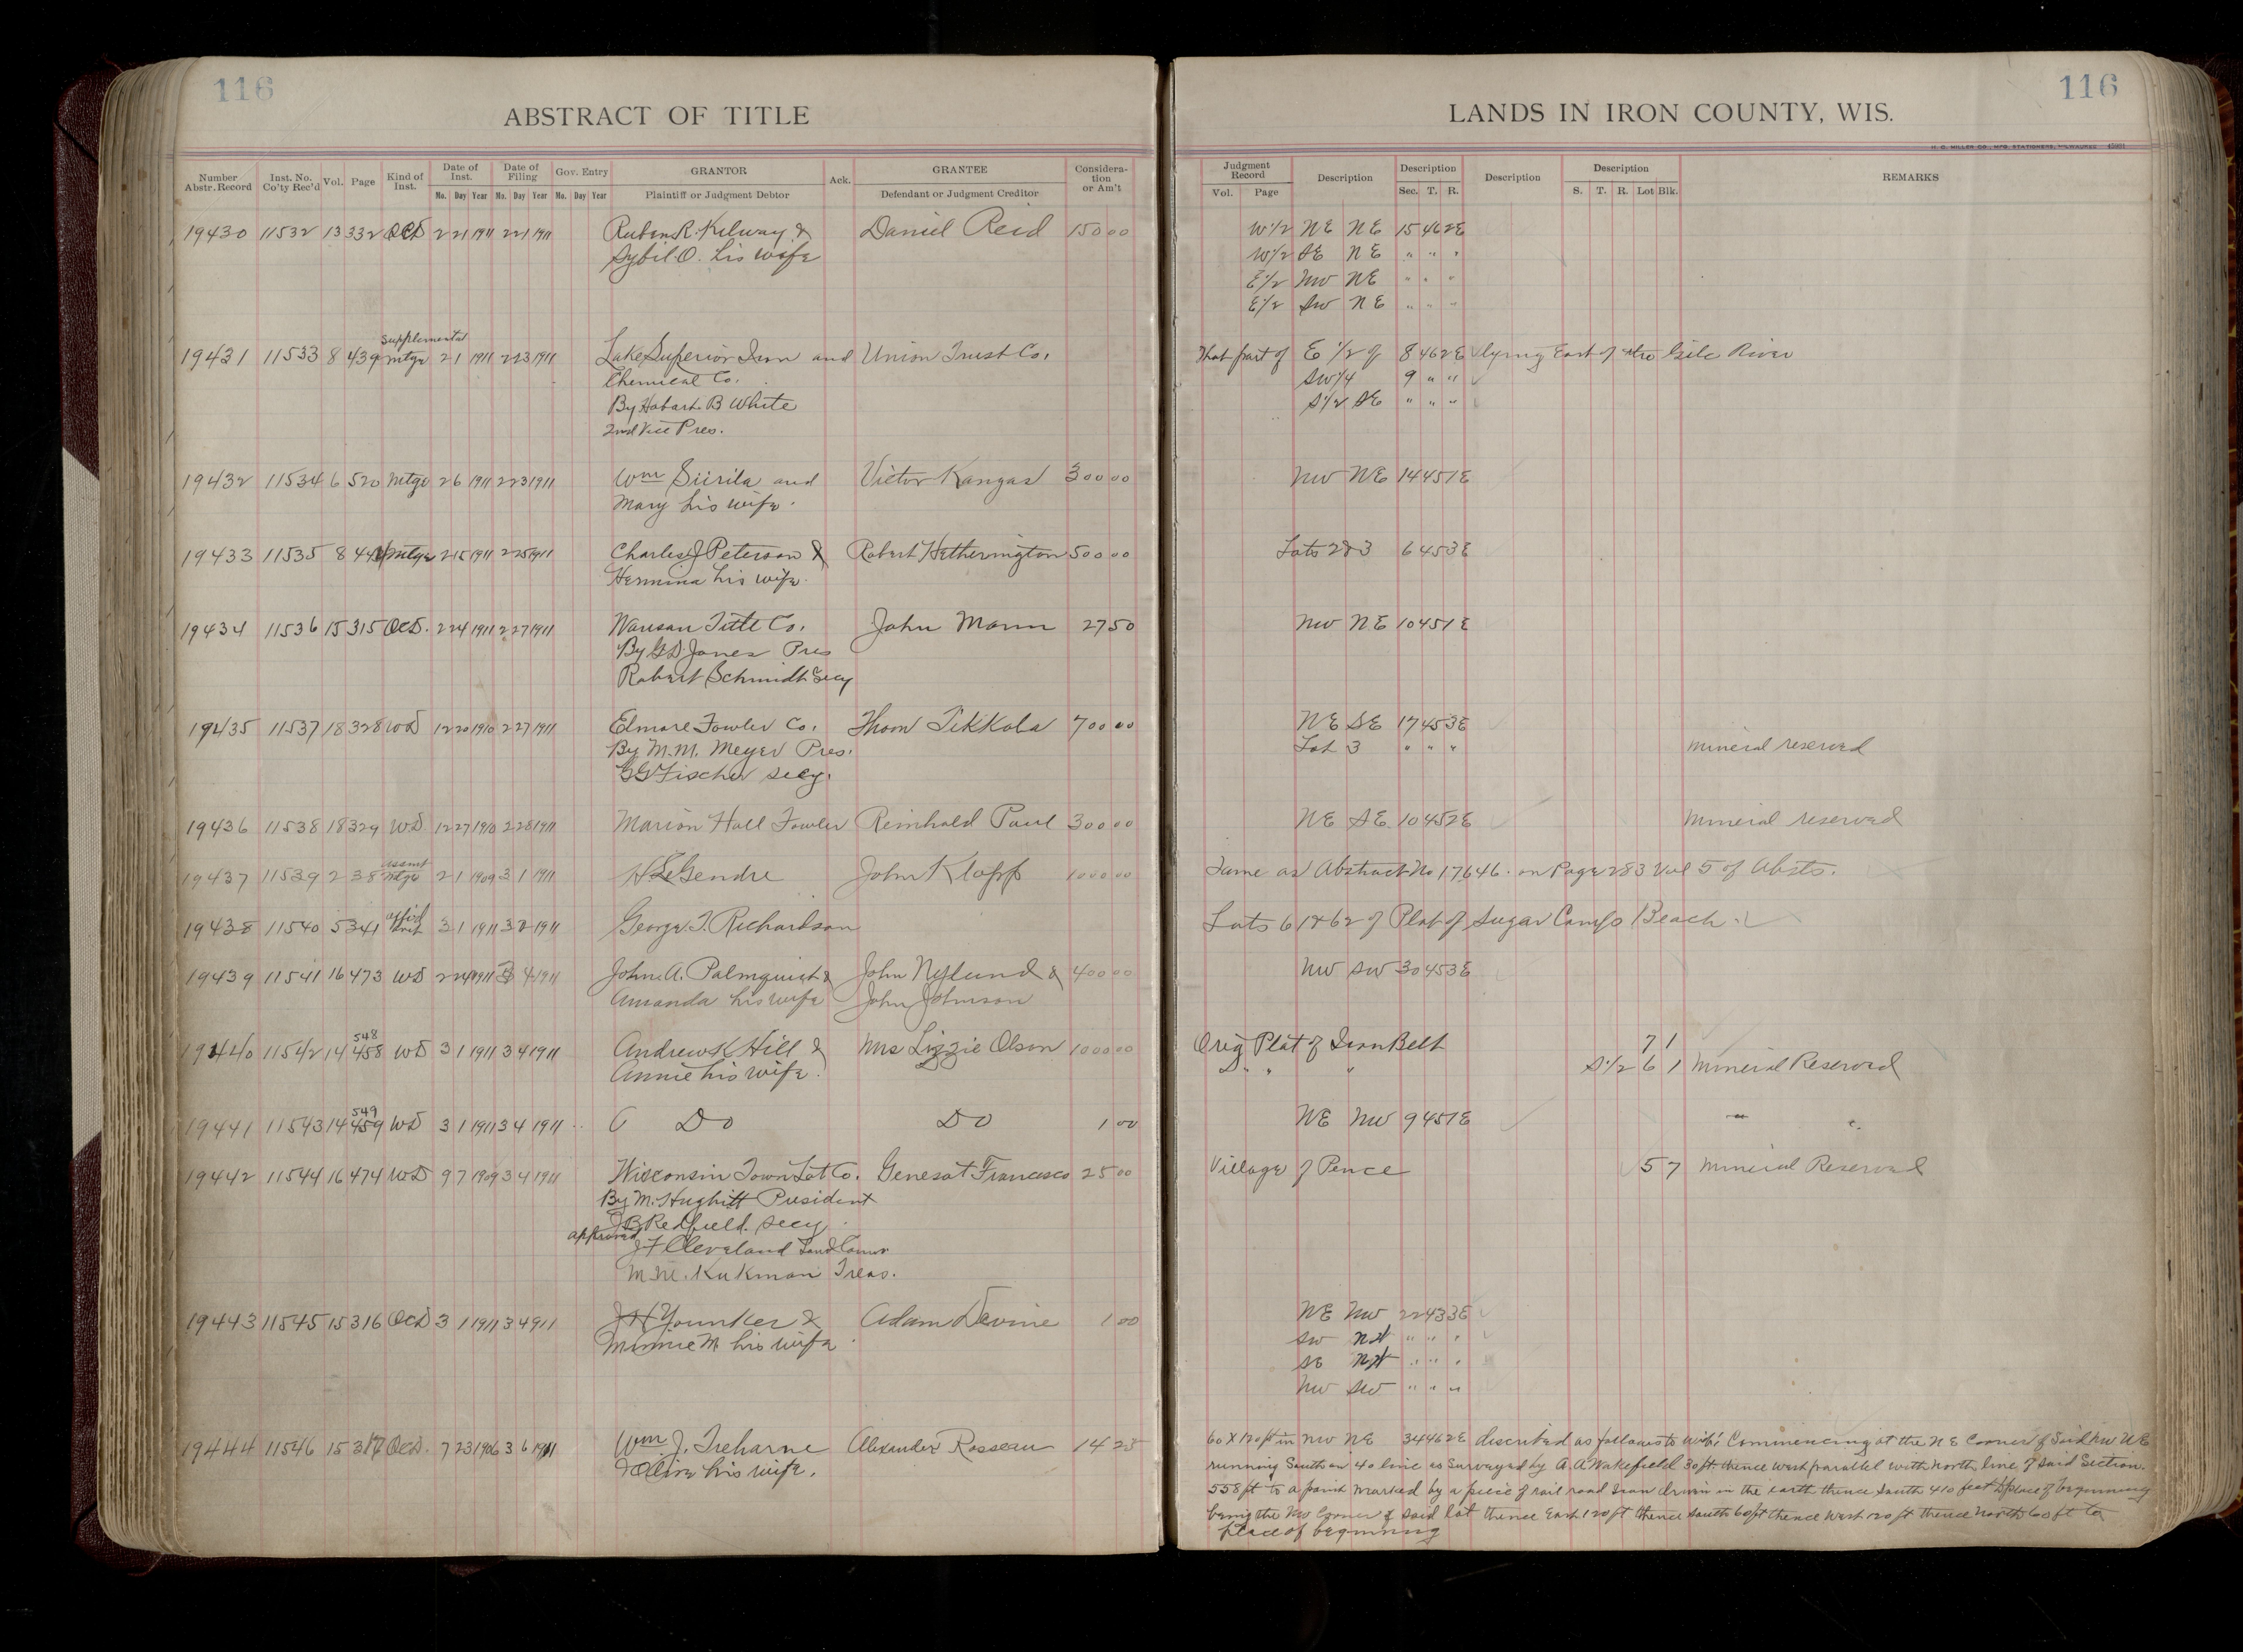 116
ABSTRACT OF TITLE
Number Abstr. Record Inst. No. Co'ty Rec'd Vol. Page Kind of Inst. Date of Inst. Date of Filing Gov. Entry GRANTOR Ack. GRANTEE Considera-tion or Am't
Mo. Day Year Mo. Day Year Mo. Day Year Plaintiff or Judgment Debtor Defendant or Judgment Creditor
19430 11532 13 332 QCD 2 21 1911 2 21 1911 Ruben R. Kelway & Daniel Reid 150 00
Sybil O. his wife
Supplemental
19431 11533 8 439 Mtge 2 1 1911 2 23 1911 Lake Superior Iron and Union Trust Co.
Chemical Co.
By Hobart B White
2nd Vice Pres.
19432 11534 6 520 Mtge 2 6 1911 2 23 1911 Wm Siirila and Victor Kangas 300 00
Mary his wife.
19433 11535 8 44 Mtge 2 15 1911 2 25 1911 Charles J Peterson & Robert Hetherington 500 00
Hermina his wife.
19434 11536 15 315 QCD. 2 24 1911 2 27 1911 Wausau Title Co. John Mann 27 50
By G D. Jones Pres
Robert Schmidt Secy
19435 11537 18 328 WD 12 20 1910 2 27 1911 Elmore Fowler Co. Thom Tikkala 700 00
By M. M. Meyer Pres.
G G Fischer Secy.
19436 11538 18 329 WD 12 27 1910 2 28 1911 Marion Hall Fowler Reinhold Paul 300 00
assmt
19437 11539 2 38 Mtge 2 1 1909 3 1 1911 H LeGendre John Klopp 1000 00
affid
19438 11540 5 341 3 1 1911 3 2 1911 George T. Richardson
19439 11541 16 473 WD 2 24 1911 3 4 1911 John A. Palmquist & John Nylund & 400 00
Amanda his wife John Johnson
548
19440 11542 14 458 WD 3 1 1911 3 4 1911 Andrew K Hill & Mrs Lizzie Olson 1000 00
Annie his wife.
549
19441 11543 14 459 WD 3 1 1911 3 4 1911 Do Do 1 00
19442 11544 16 474 WD 9 7 1909 3 4 1911 Wisconsin Town Lot Co. Genesat Francesco 25 00
By M. Hughitt President
J B Redfield. Secy
approved
J F Cleveland Land Comr
M. M. Kirkman Treas.
19443 11545 15 316 QCD 3 1 1911 3 4 911 J H Younker & Adam Devine 1 00
Minnie M his wife
19444 11546 15 317 QCD. 7 23 1906 3 6 1911 Wm J. Treharne Alexander Rosseau 14 25
& Olive his wife.
116
LANDS IN IRON COUNTY, WIS.
H. C. MILLER CO., MFG. STATIONERS, MILWAUKEE
Judgment Record Description Description Description Description REMARKS
Vol. Page Sec. T. R. S. T. R. Lot Blk.
W 1/2 NE NE 15 46 2E
W 1/2 SE NE " " "
E 1/2 NW NE " " "
E 1/2 SW NE " " "
That part of E 1/2 of 8 46 2E lying East of the Gile River
SW 1/4 9 " "
S 1/2 SE " " "
NW NE 14 45 1E
Lots 2 & 3 6 45 3E
NW NE 10 45 1E
NE SE 17 45 3E
Lot 3 " " " Mineral reserved
NE SE 10 45 2E Mineral reserved
Same as Abstract No 17646. on Page 283 Vol 5 of Absts.
Lots 61 & 62 of Plat of Sugar Camp Beach.
NW SW 30 45 3E
Orig Plat of Iron Belt 7 1
" " " S 1/2 6 1 Mineral Reserved
NE NW 9 45 1E " "
Village of Pence 5 7 Mineral Reserved
NE NW 22 43 3E
SW NW " " "
SE NW " " "
NW SW " " "
60 X 120 ft in NW NE 34 46 2E described as follows to wit: Commencing at the N E Corner of Said NW NE
running South on 40 line as Surveyed by A. A Wakefield 30 ft. thence West parallel with North line of Said Section.
558 ft to a point marked by a piece of rail road Iron driven in the earth thence South 410 feet to place of beginning
being the NW Corner of said lot thence East 120 ft thence South 60 ft thence West 120 ft thence North 60 ft to
place of beginning